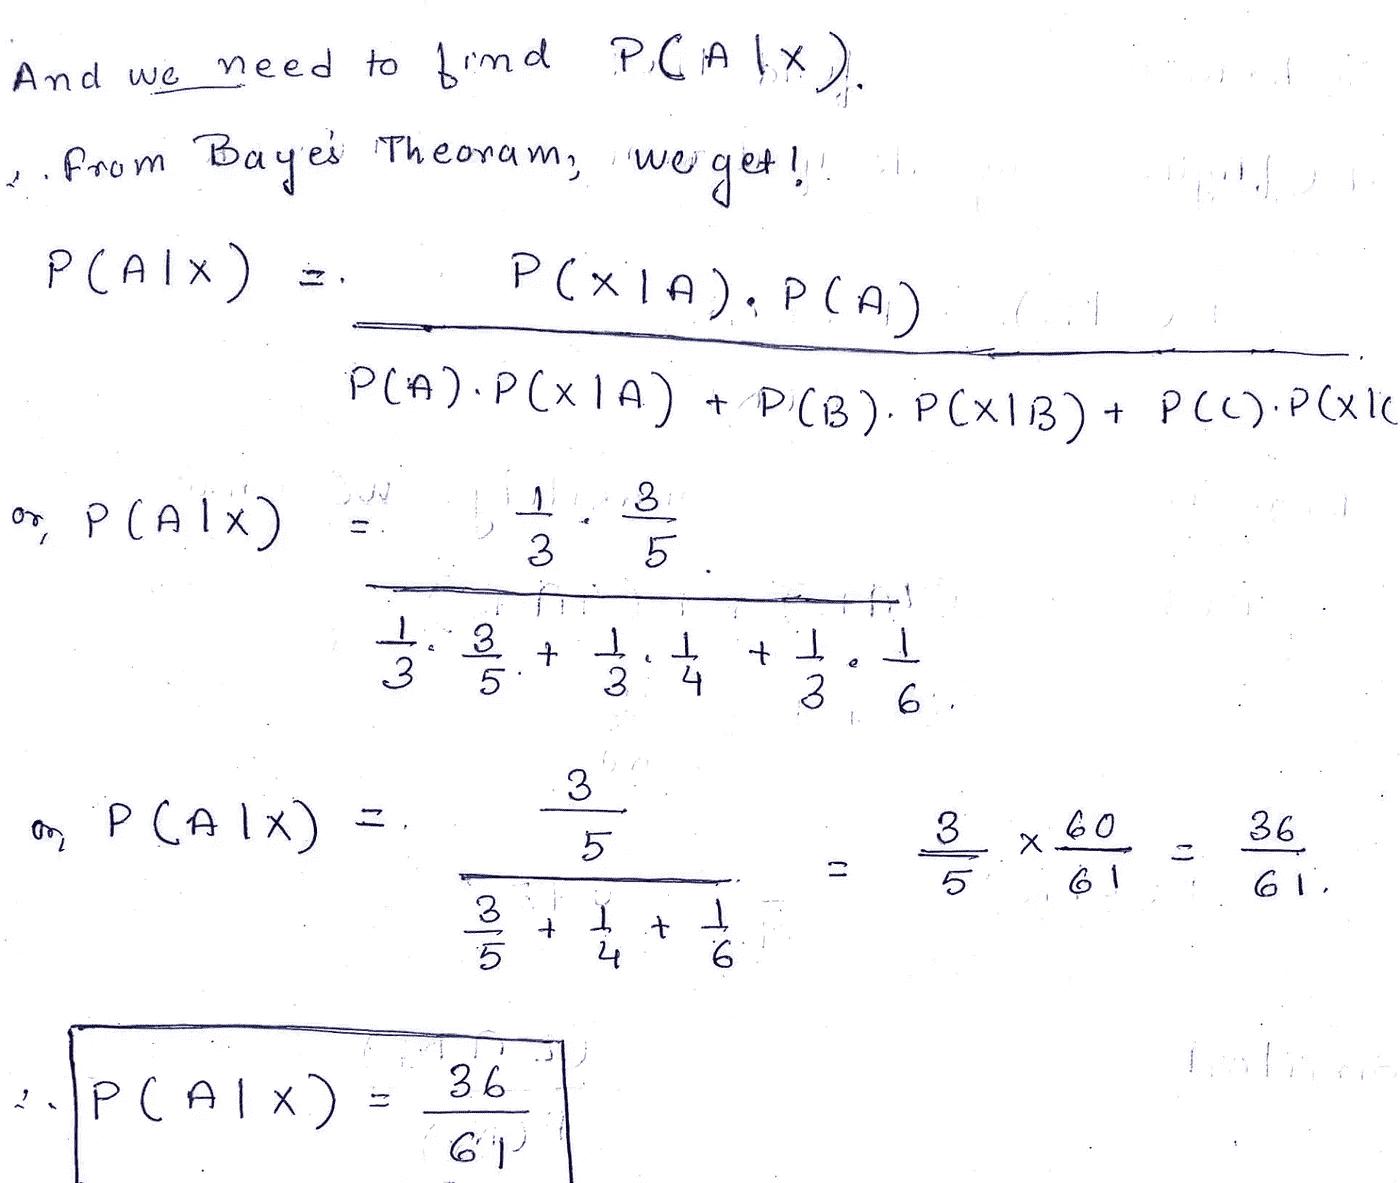 And we need to find P(A|X).
∴ From Baye's Theoram, we get!
P(A|X) = P(X|A). P(A) / P(A).P(X|A) + P(B). P(X|B) + P(C).P(X|C
or, P(A|X) = 1/3 . 3/5 / 1/3 . 3/5 + 1/3 . 1/4 + 1/3 . 1/6.
or, P(A|X) = 3/5 / 3/5 + 1/4 + 1/6 = 3/5 × 60/61 = 36/61.
∴ P(A|X) = 36/61